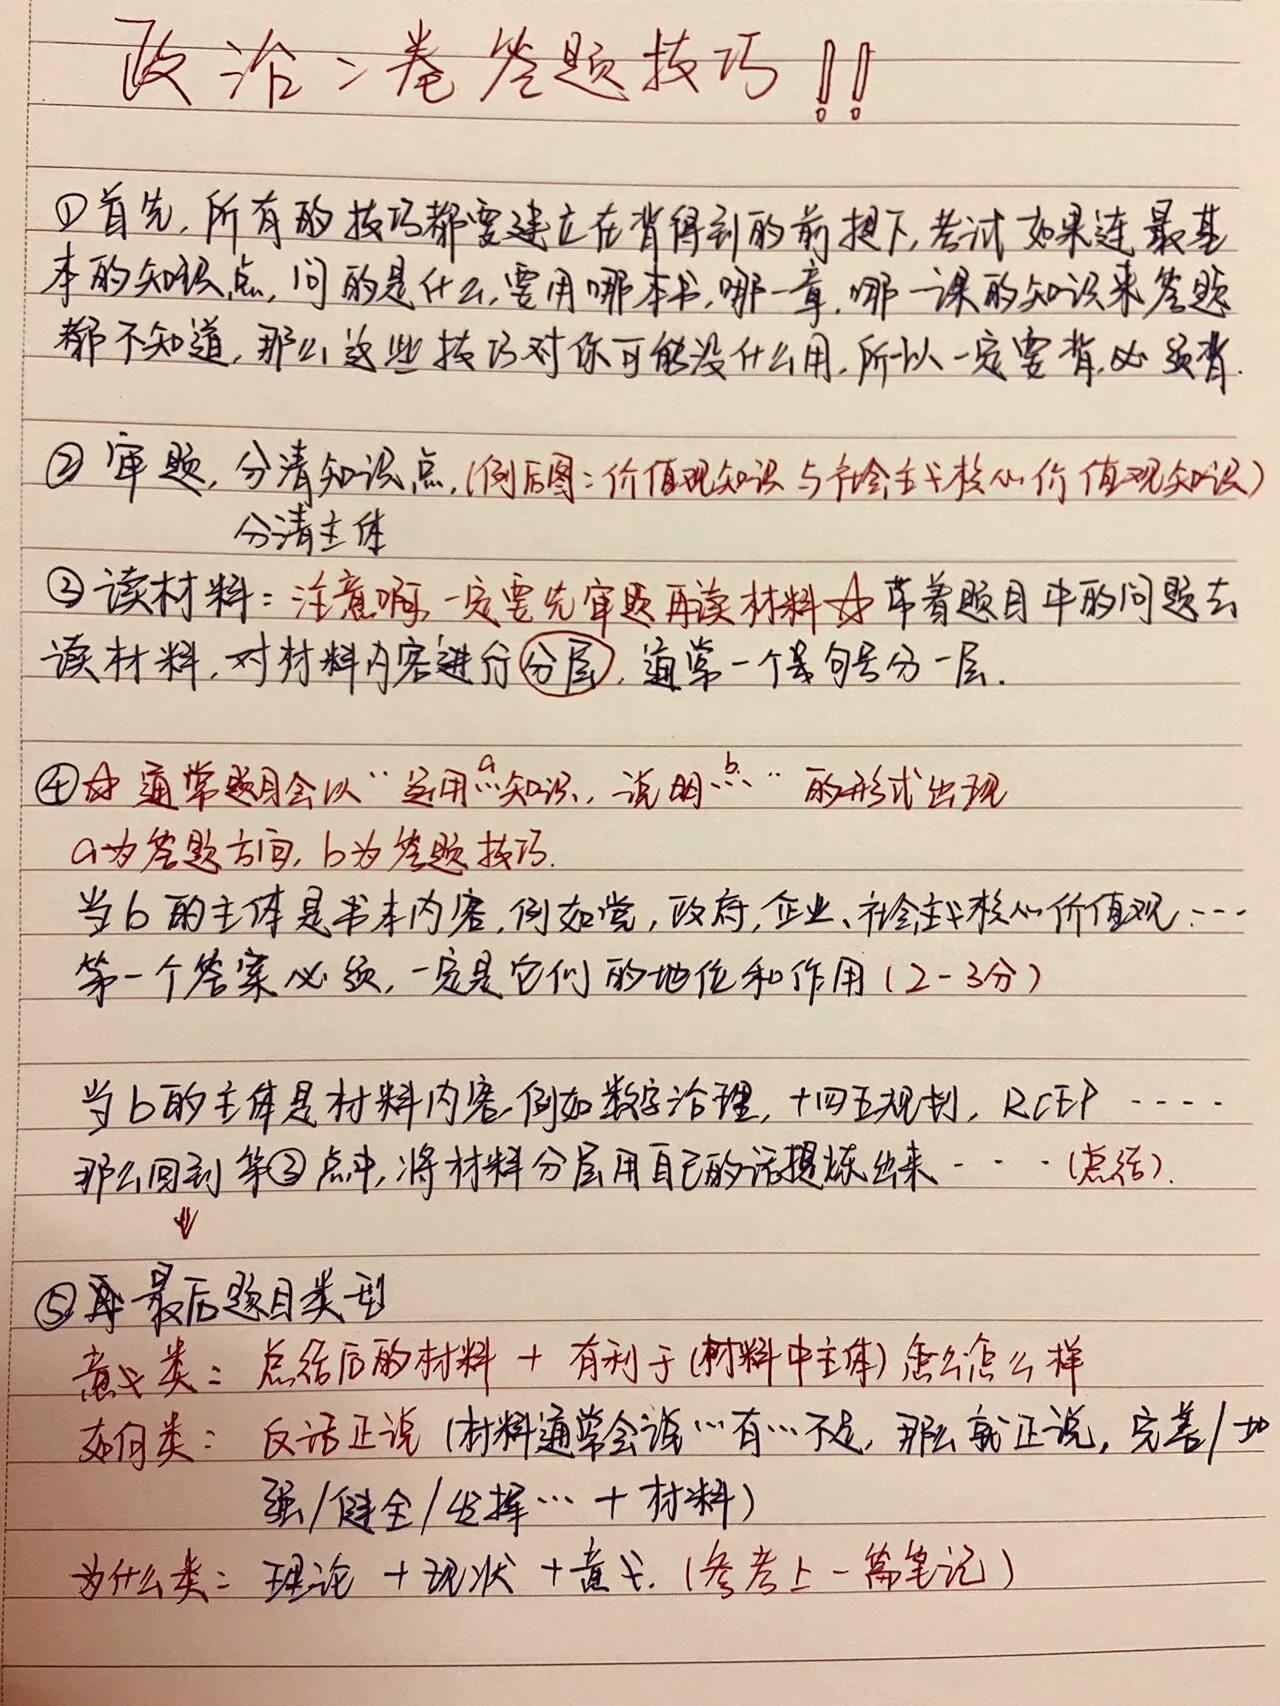 政治二卷答题技巧!!
①首先,所有的技巧都要建立在背得到的前提下,考试如果连最基
本的知识点,问的是什么,要用哪本书,哪一章,哪一课的知识来答题
都不知道,那么这些技巧对你可能没什么用,所以一定要背,必须背.
②审题,分清知识点,(例后图:价值观知识与社会主义核心价值观知识)
分清主体
③读材料:注意啊,一定要先审题再读材料☆带着题目中的问题去
读材料,对材料内容进行分层,通常一个句号分一层.
④☆通常题目会以"运用…a知识,说明…b"的形式出现
a为答题方向,b为答题技巧.
当b的主体是书本内容,例如党,政府,企业、社会主义核心价值观…
第一个答案必须,一定是它们的地位和作用(2-3分)
当b的主体是材料内容,例如数字治理,十四五规划,RCEP ····
那么回到第③点中,将材料分层用自己的话提炼出来···(总结).
↓
⑤最后题目类型
意义类:总结后的材料+有利于(材料中主体)怎么怎么样
如何类:反话正说(材料通常会说…有…不足,那么就正说,完善/加
强/健全/发挥…+材料)
为什么类:理论+现状+意义.(参考上一篇笔记)